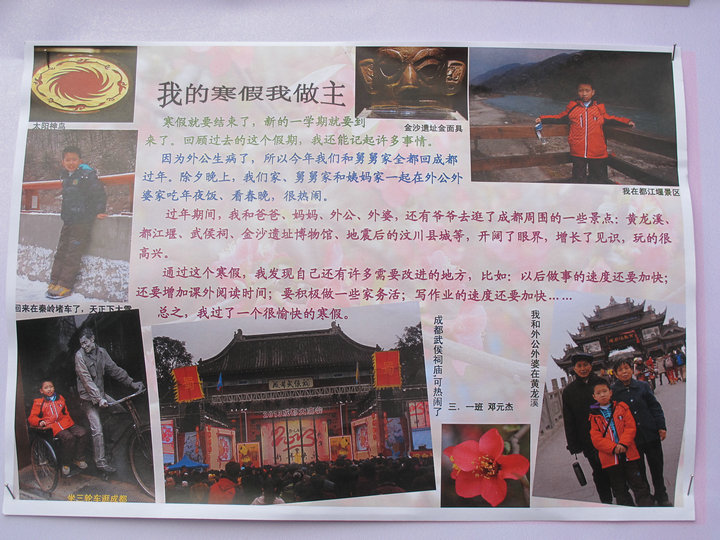 我的寒假我做主
太阳神鸟
金沙遗址金面具
我在都江堰景区
寒假就要结束了，新的一学期就要到
来了。回顾过去的这个假期，我还能记起许多事情。
因为外公生病了，所以今年我们和舅舅家全都回成都
过年。除夕晚上，我们家、舅舅家和姨妈家一起在外公外
婆家吃年夜饭、看春晚，很热闹。
过年期间，我和爸爸、妈妈、外公、外婆，还有爷爷去逛了成都周围的一些景点：黄龙溪、
都江堰、武侯祠、金沙遗址博物馆、地震后的汶川县城等，开阔了眼界，增长了见识，玩的很
高兴。
通过这个寒假，我发现自己还有许多需要改进的地方，比如：以后做事的速度还要加快；
还要增加课外阅读时间；要积极做一些家务活；写作业的速度还要加快……
总之，我过了一个很愉快的寒假。
回来在秦岭堵车了，天正下大雪
坐三轮车逛成都
成都武侯祠庙会可热闹了
三．一班 邓元杰
我和外公外婆在黄龙溪